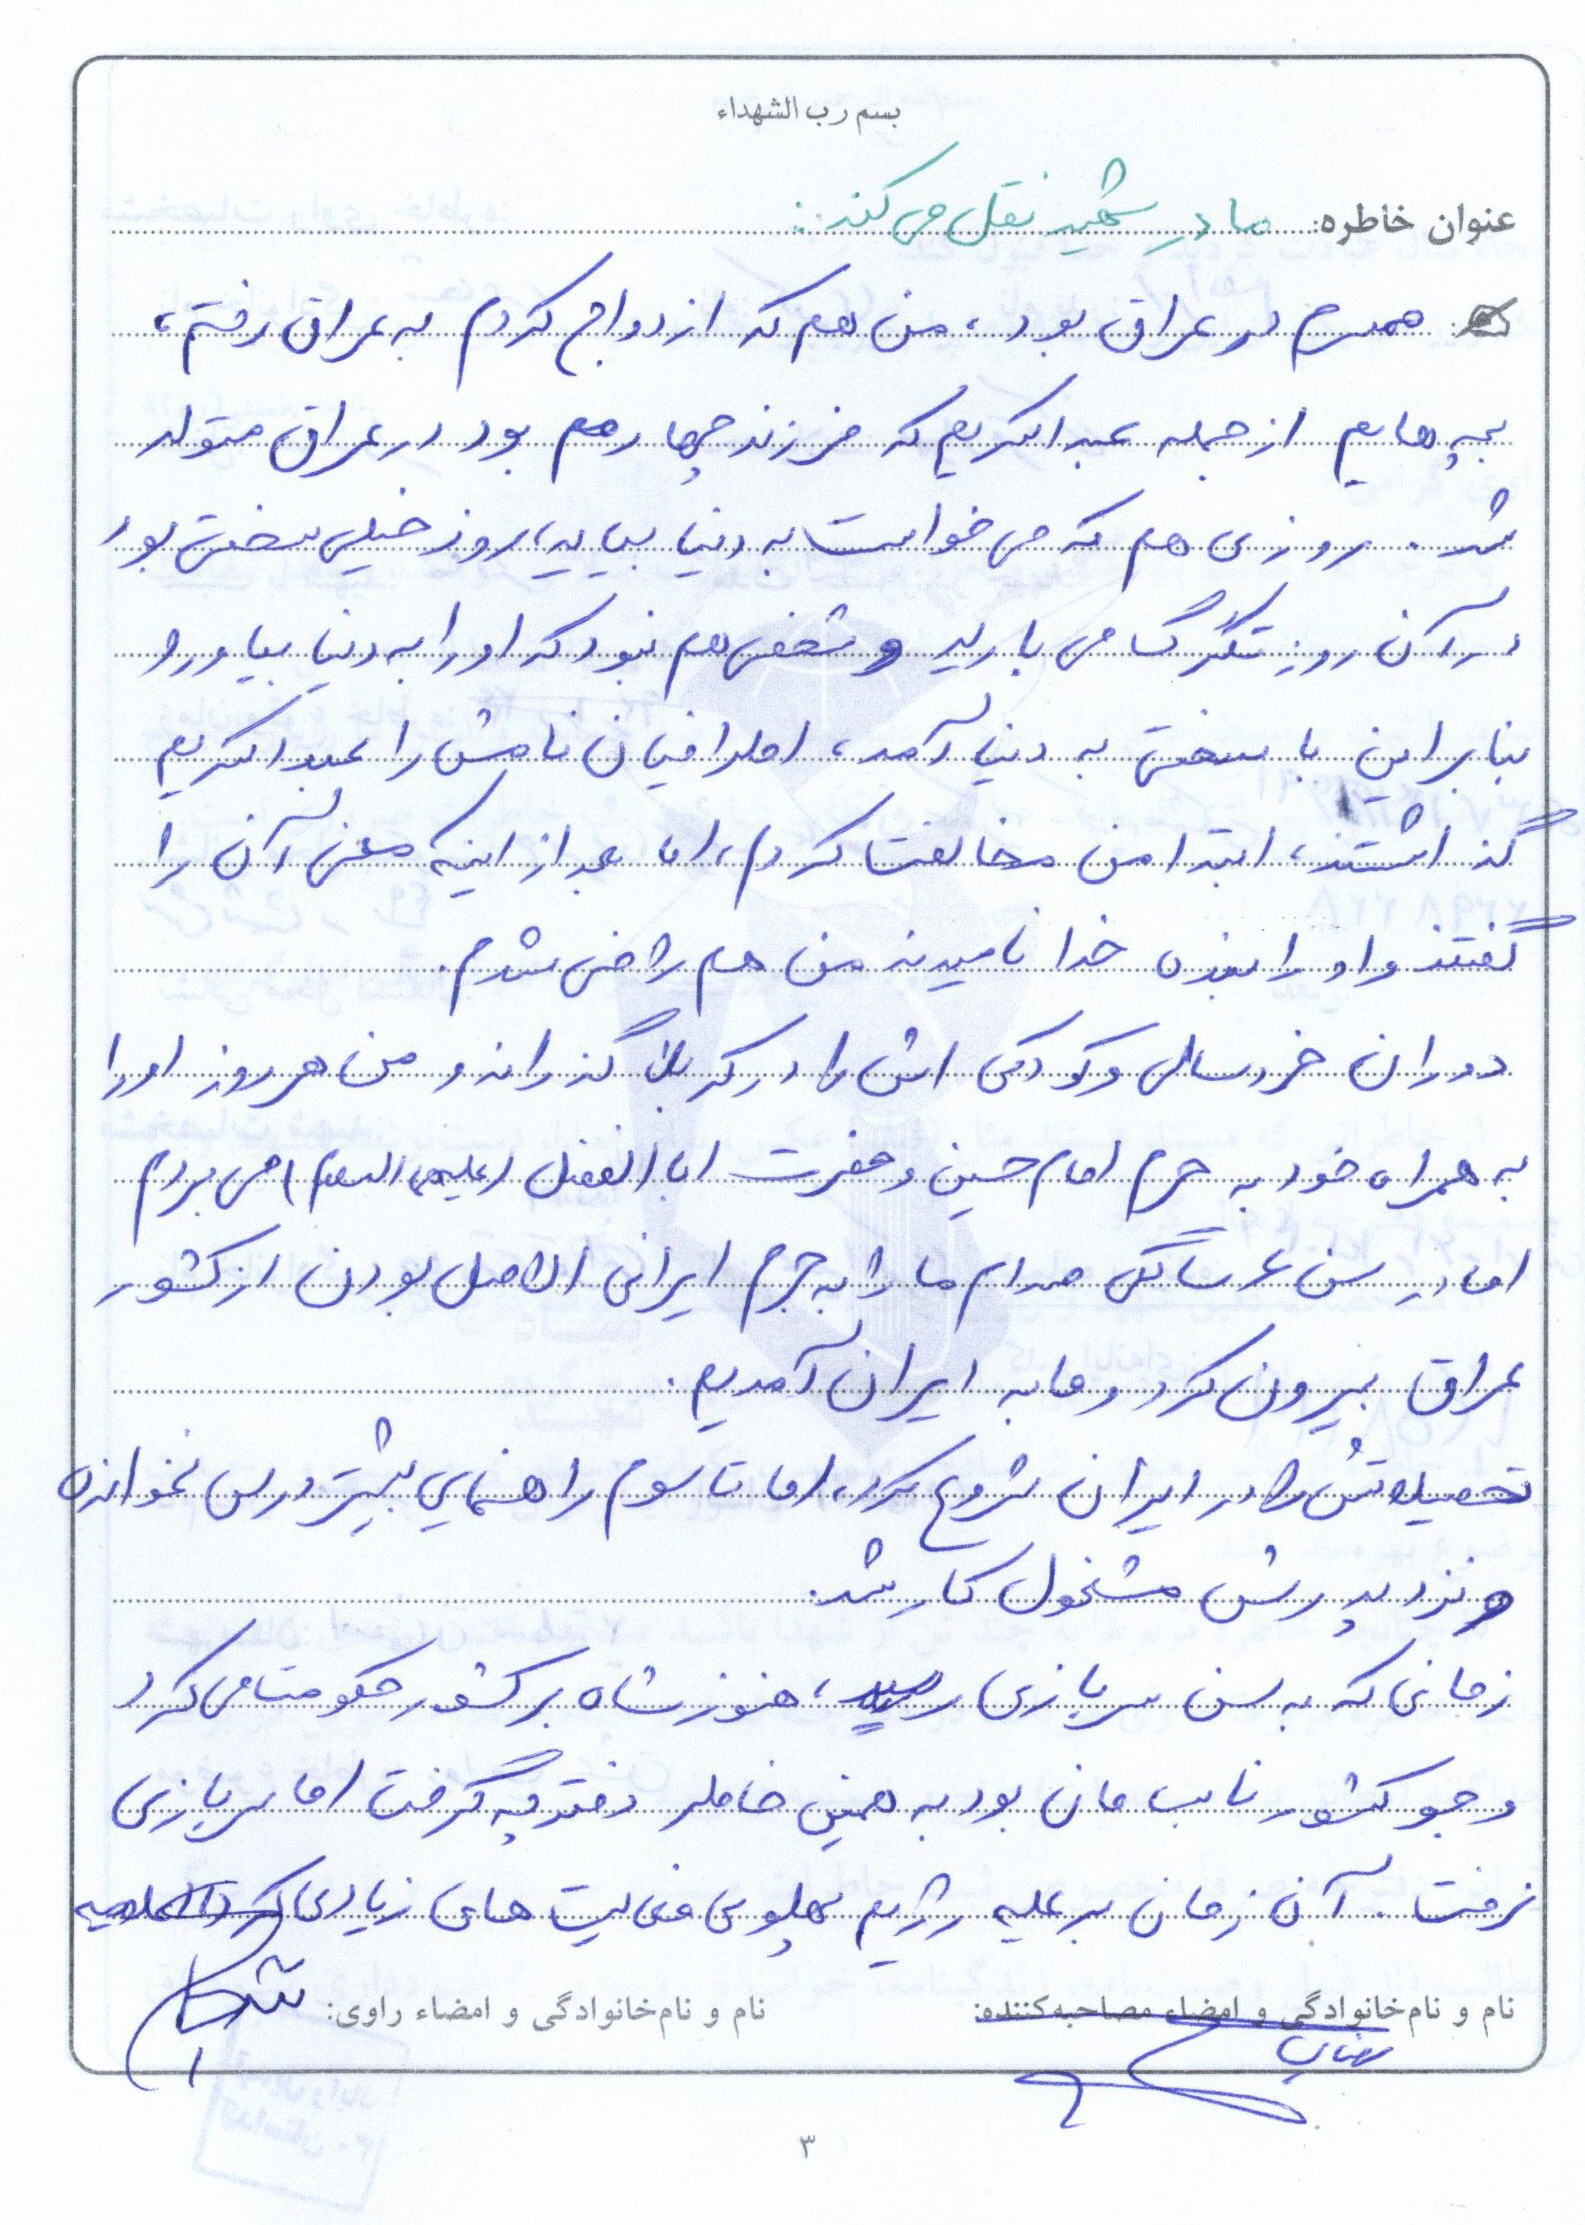 بسم رب الشهداء
عنوان خاطره: مادر شهید نقل می کند:
همسرم در عراق بود، من هم که ازدواج کردم به عراق رفتم،
بچه هایم از جمله عبدالکریم که فرزند چهارهم بود در عراق متولد
شد. روزی هم که می خواست به دنیا بیاید، روز خیلی سختی بود
در آن روز تگرگ می بارید و شخصی هم نبود که او را به دنیا بیاورد و
بنابراین با سختی به دنیا آمد، اطرافیان نامش را عبدالکریم
گذاشتند، ابتدا من مخالفت کردم، اما بعد از اینکه معنی آن را
گفتند و او را بنده خدا نامیدند من هم راضی شدم.
دوران خردسالی و کودکی اش را در کربلا گذراند و من هر روز او را
به همراه خود به حرم امام حسین و حضرت اباالفضل (علیهما السلام) می بردم
اما در سن ۶ سالگی صدام ما را به جرم ایرانی الاصل بودن از کشور
عراق بیرون کرد و ما به ایران آمدیم.
تحصیلاتش را در ایران شروع کرد، اما تا سوم راهنمایی بیشتر درس نخوانده
و نزد پدرش مشغول کار شد.
زمانی که به سن سربازی رسید، هنوز شاه بر کشور حکومت می کرد
و جو کشور نابسامان بود به همین خاطر دفترچه گرفت اما سربازی
نرفت. آن زمان بر علیه رژیم پهلوی فعالیت های زیادی کرد
نام و نام‌خانوادگی و امضاء مصاحبه‌کننده:
نام و نام‌خانوادگی و امضاء راوی:
۳